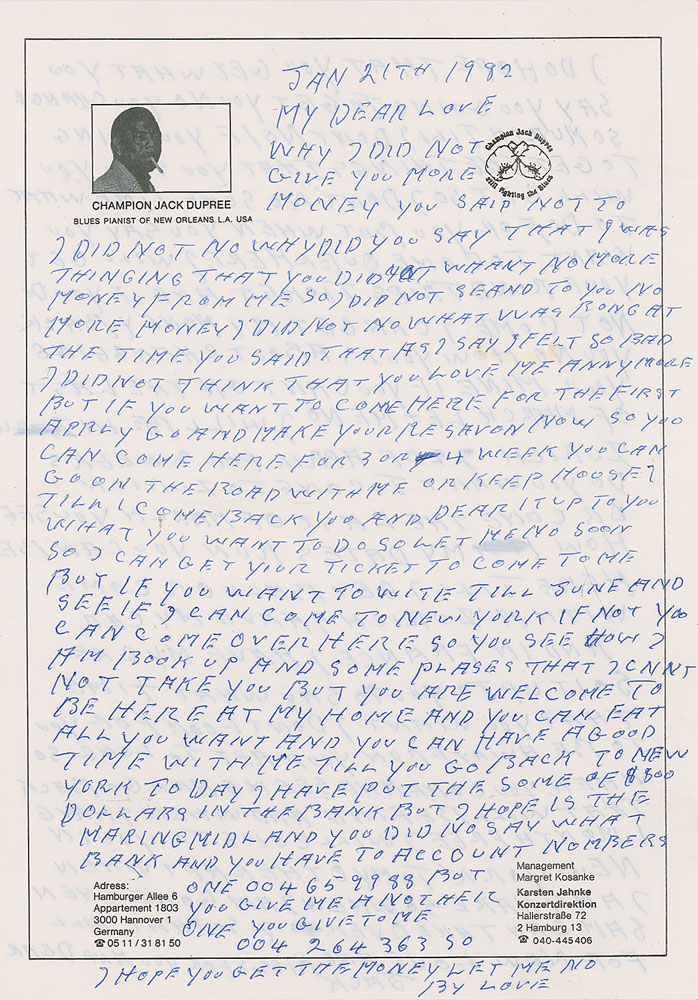 JAN 21TH 1982
MY DEAR LOVE
WHY I DID NOT
GIVE YOU MORE
MONEY YOU SAID NOT TO
Champion Jack Dupree
Still Fighting the Blues
CHAMPION JACK DUPREE
BLUES PIANIST OF NEW ORLEANS L.A. USA
I DID NOT NO WHY DID YOU SAY THAT I WAS
THINGING THAT YOU DID NOT WHANT NO MORE
MONEY FROM ME SO I DID NOT SEAND TO YOU NO
MORE MONEY I DID NOT NO WHAT WAS RONG AT
THE TIME YOU SAID THAT AS I SAY I FELT SO BAD
I DID NOT THINK THAT YOU LOVE ME ANNY MORE
BUT IF YOU WANT TO COME HERE FOR THE FIRST
APRLY GO AND MAKE YOUR RESAVON NOW SO YOU
CAN COME HERE FOR 3 OR 4 WEEK YOU CAN
GO ON THE ROAD WITH ME OR KEEP HOUSE
TILL I COME BACK YOU AND DEAR IT UP TO YOU
WHAT YOU WANT TO DO SO LET ME NO SOON
SO I CAN GET YOUR TICKET TO COME TO ME
BUT IF YOU WANT TO WITE TILL SUNE AND
SEE IF I CAN COME TO NEW YORK IF NOT YOU
CAN COME OVER HERE SO YOU SEE HOW I
AM BOOK UP AND SOME PLASES THAT I CNNT
NOT TAKE YOU BUT YOU ARE WELCOME TO
BE HERE AT MY HOME AND YOU CAN EAT
ALL YOU WANT AND YOU CAN HAVE A GOOD
TIME WITH ME TILL YOU GO BACK TO NEW
YORK TO DAY I HAVE PUT THE SOME OF $500
DOLLARS IN THE BANK BUT I HOPE IS THE
MARING MIDLAND YOU DID NO SAY WHAT
BANK AND YOU HAVE TO ACCOUNT NOMBERS
ONE 004 65 9988 BUT
YOU GIVE ME A NOTHER
ONE YOU GIVE TO ME
004 264 363 50
I HOPE YOU GET THE MONEY LET ME NO
BY LOVE
Adress:
Hamburger Allee 6
Appartement 1803
3000 Hannover 1
Germany
☎ 05 11 / 31 81 50
Management
Margret Kosanke
Karsten Jahnke
Konzertdirektion
Hallerstraße 72
2 Hamburg 13
☎ 040-445406